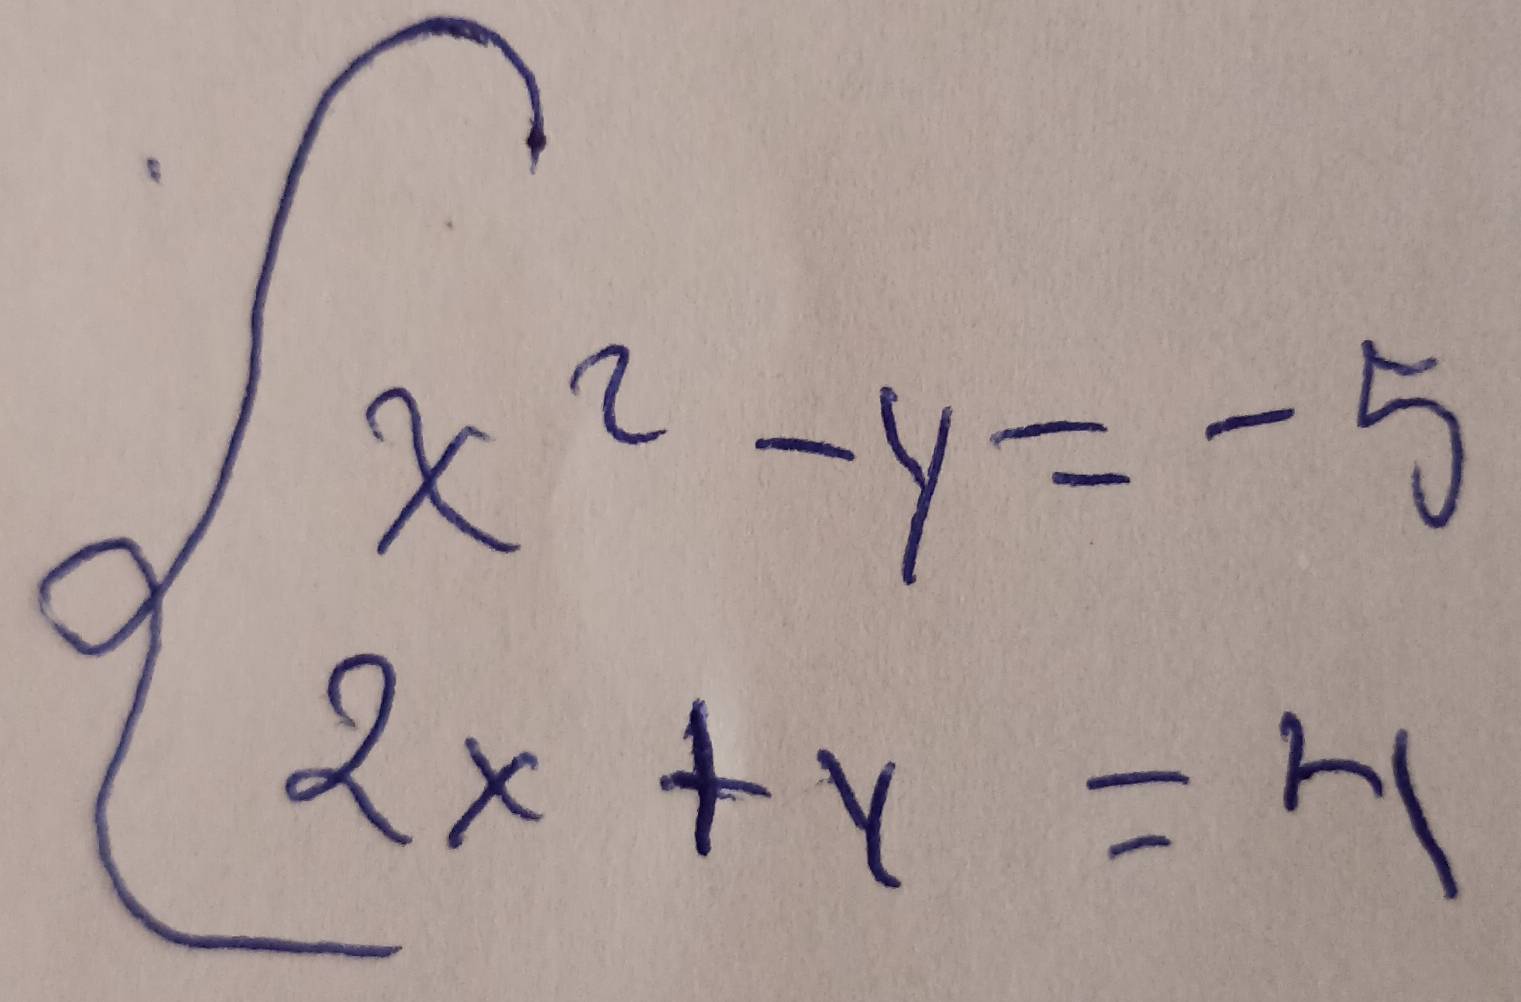 x² - y = -5
2x + y = 4